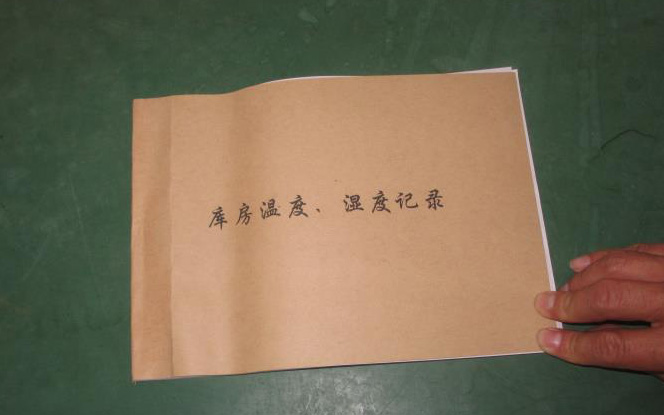 库房温度、湿度记录